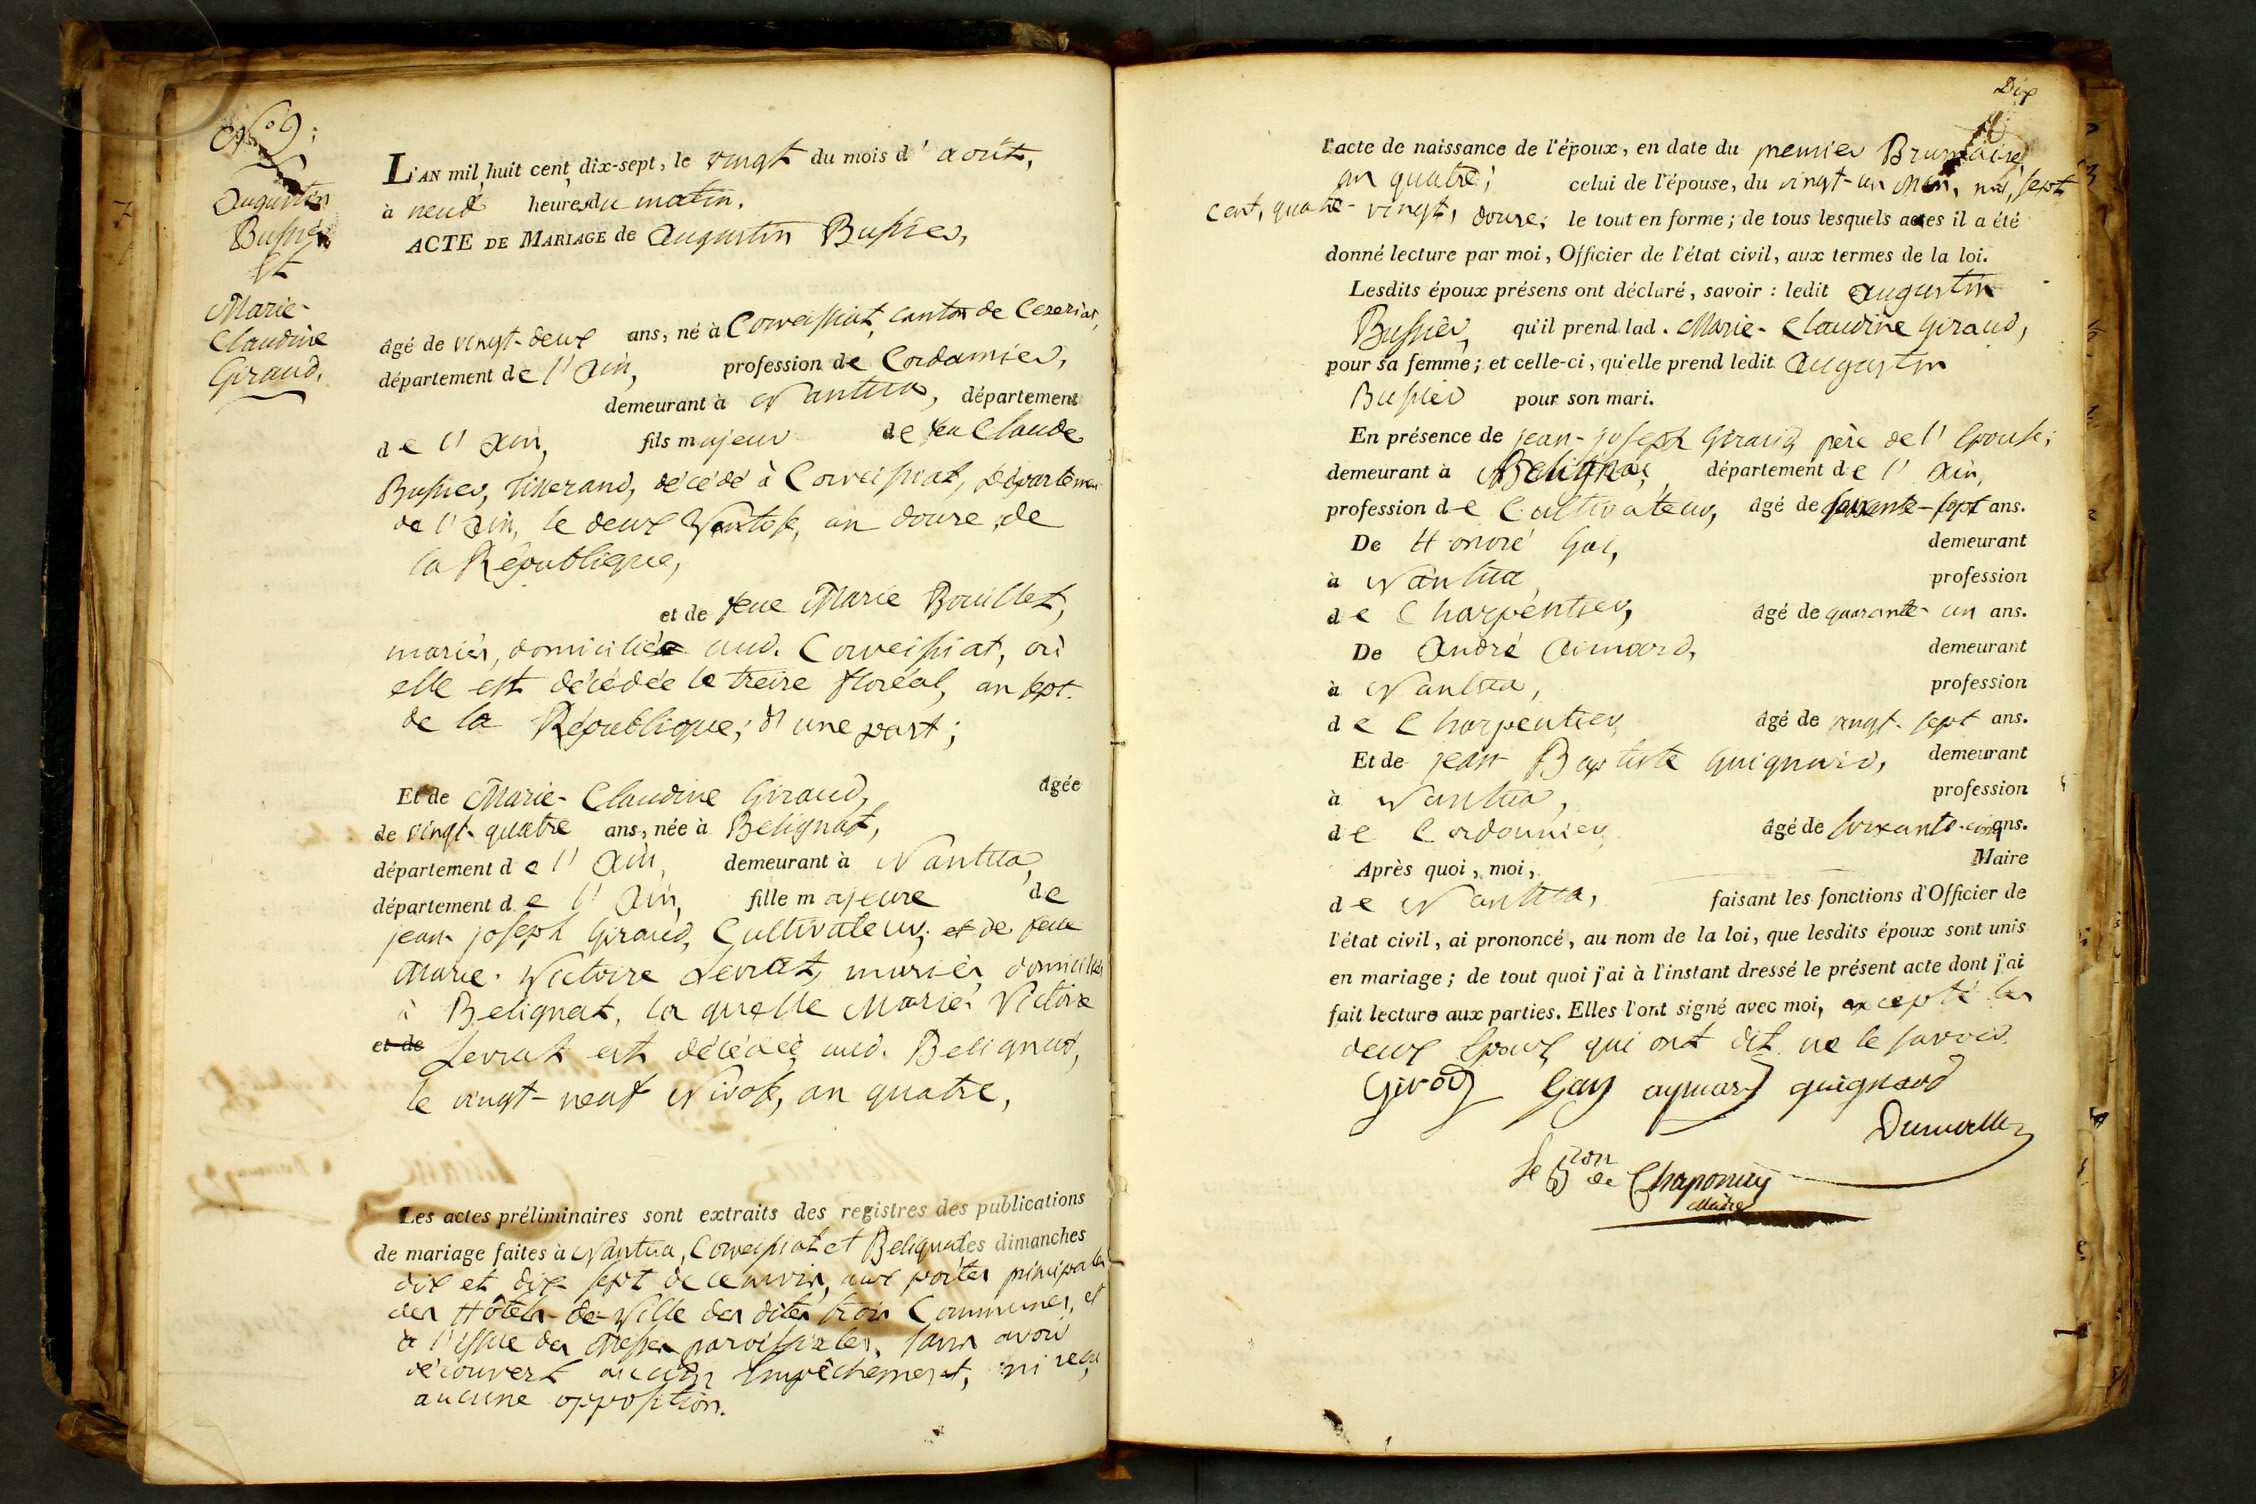 N.o 9;
Augustin
Bussier
Et
Marie-
Claudine
Giraud.
L'AN mil huit cent dix-sept, le vingt du mois d'août,
à neuf heures du matin.
ACTE DE MARIAGE de Augustin Bussier,
âgé de vingt-deux ans, né à Corveissiat, canton de Ceseriat,
département de l'Ain, profession de Cordonnier,
demeurant à Nantua, département
de l'Ain, fils majeur de feu Claude
Bussier, Tisserand, décédé à Corveissiat, Département
de l'Ain, le deux Ventose, an douze, de
la République,
et de feue Marie Bouillet,
mariés, domiciliés aud. Corveissiat, où
elle est décédée le treize floréal, an sept.
de la République; d'une part;
Et de Marie-Claudine Giraud, âgée
de vingt-quatre ans, née à Belignat,
département de l'Ain, demeurant à Nantua,
département de l'Ain, fille majeure de
jean-joseph Giraud, Cultivateur; et de feue
Marie-Victoire Levrat, mariés, domiciliés
à Belignat, la quelle Marie-Victoire
et de Levrat est décédée aud. Belignat,
le vingt-neuf Nivose, an quatre,
Les actes préliminaires sont extraits des registres des publications
de mariage faites à Nantua, Corveissiat et Belignat les dimanches
dix et dix-sept de ce mois, aux portes principales
des Hôtels-de-Ville des dites trois Communes, et
à l'issue des Messes paroissiales, sans avoir
découvert aucun Empêchement, ni reçu
aucune opposition.
Dix
l'acte de naissance de l'époux, en date du premier Brumaire
an quatre; celui de l'épouse, du vingt-un Mai, mil sept
cent, quatre-vingt, douze; le tout en forme; de tous lesquels actes il a été
donné lecture par moi, Officier de l'état civil, aux termes de la loi.
Lesdits époux présens ont déclaré, savoir: ledit Augustin
Bussier, qu'il prend lad. Marie-Claudine Giraud,
pour sa femme; et celle-ci, qu'elle prend ledit Augustin
Bussier pour son mari.
En présence de jean-joseph Giraud, père de l'Epouse;
demeurant à Belignat, département de l'Ain,
profession de Cultivateur, âgé de soixante-sept ans.
De Honoré Gai, demeurant
à Nantua, profession
de Charpentier, âgé de quarante-un ans.
De André Aimard, demeurant
à Nantua, profession
de Charpentier, âgé de vingt-sept ans.
Et de jean Baptiste Guignard, demeurant
à Nantua, profession
de Cordonnier, âgé de soixante-cinq ans.
Après quoi, moi, Maire
de Nantua, faisant les fonctions d'Officier de
l'état civil, ai prononcé, au nom de la loi, que lesdits époux sont unis
en mariage; de tout quoi j'ai à l'instant dressé le présent acte dont j'ai
fait lecture aux parties. Elles l'ont signé avec moi, excepté les
deux Epoux qui ont dit ne le savoir.
Girod Gay aymard guignard
Le Bron de Chaponnay
Maire